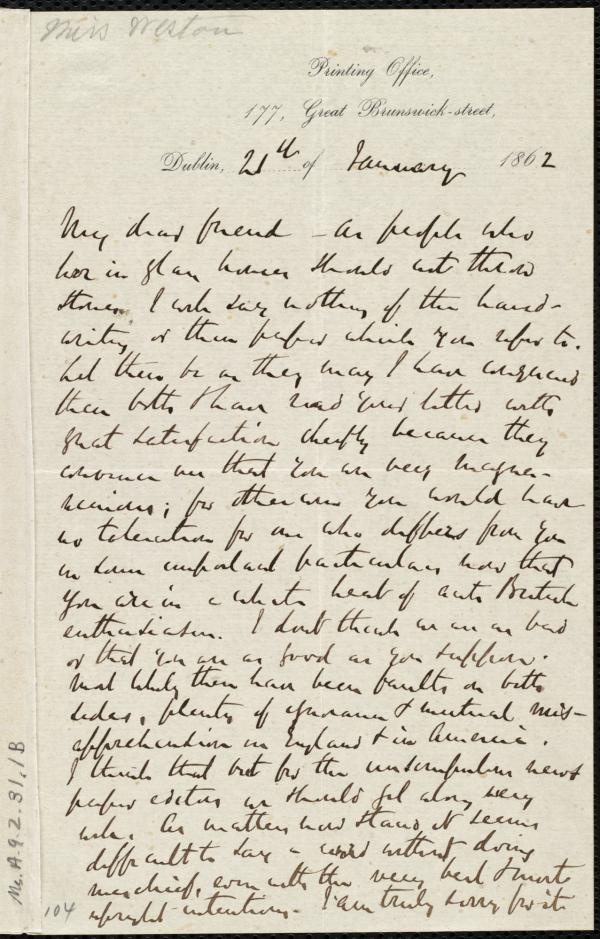 Miss Weston
Printing Office,
177, Great Brunswick-street,
Dublin, 21th of January 1862
My dear friend - As people who
live in glass houses should not throw
stones I will say nothing of the hand-
writing or thin paper which you refer to.
Let them be as they may I have conquered
them both & have read your letters with
great satisfaction chiefly because they
convince me that you are very magna-
nimous; for otherwise you would have
no toleration for one who differs from you
in some important particulars now that
you are in a white heat of anti British
enthusiasm. I dont think we are as bad
or that you are as good as you suppose.
Most likely there have been faults on both
sides, plenty of ignorance & mutual mis-
apprehension in England & in America.
I think that but for the unscrupulous news
paper editors we should get along very
well. As matters now stand it seems
difficult to say a word without doing
mischief, even with the very best & most
upright intentions. I am truly sorry for it
Ms. A. 9. 2. 31. 1B
104